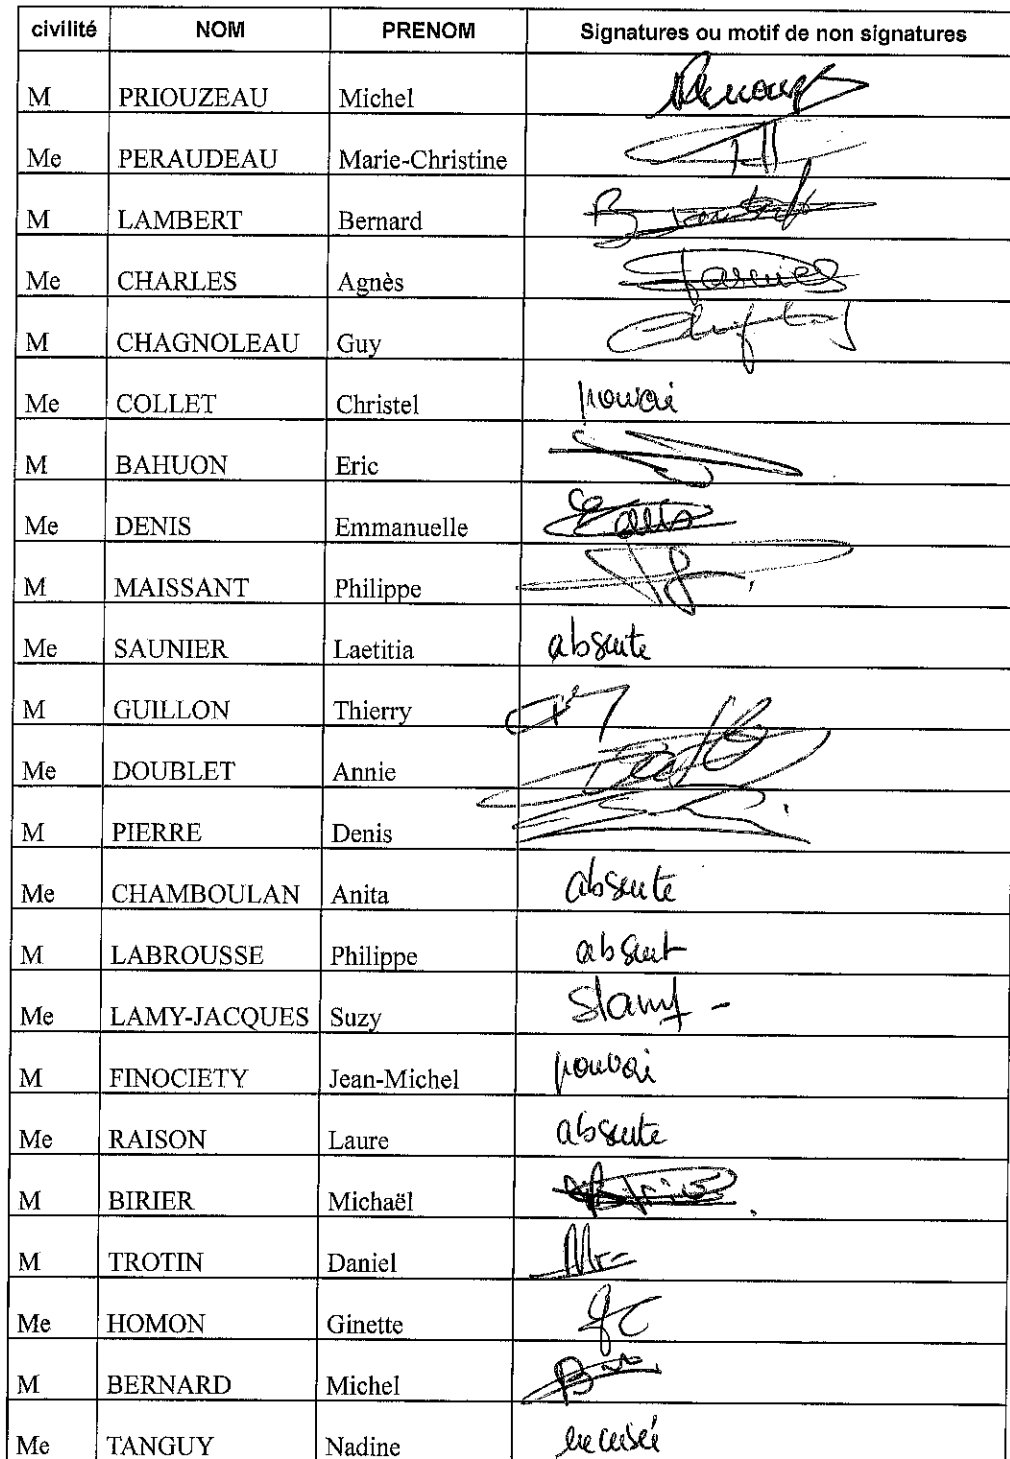 civilité NOM PRENOM Signatures ou motif de non signatures
M PRIOUZEAU Michel
Me PERAUDEAU Marie-Christine
M LAMBERT Bernard
Me CHARLES Agnès
M CHAGNOLEAU Guy
Me COLLET Christel pouvoir
M BAHUON Eric
Me DENIS Emmanuelle
M MAISSANT Philippe
Me SAUNIER Laetitia absente
M GUILLON Thierry
Me DOUBLET Annie
M PIERRE Denis
Me CHAMBOULAN Anita absente
M LABROUSSE Philippe absent
Me LAMY-JACQUES Suzy
M FINOCIETY Jean-Michel pouvoir
Me RAISON Laure absente
M BIRIER Michaël
M TROTIN Daniel
Me HOMON Ginette
M BERNARD Michel
Me TANGUY Nadine excusée